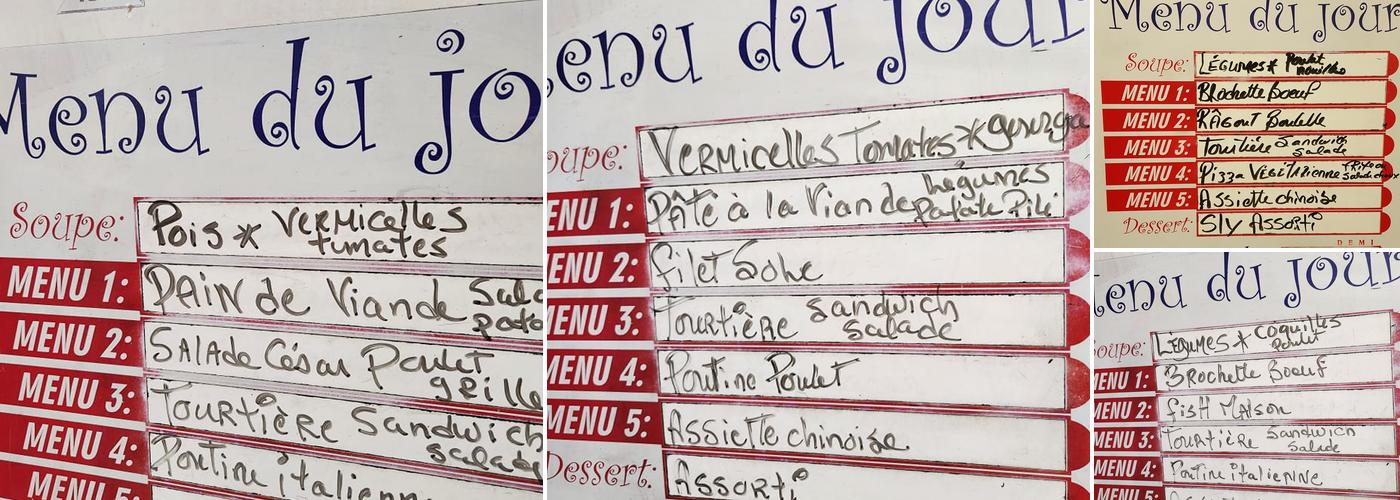 Menu du jo
Soupe: Pois * Vermicelles
tumates
MENU 1: PAIN de Viande Sala
pata
MENU 2: SALAde César Poulet
grille
MENU 3: Tourtière Sandwich
salade
MENU 4: Poutine italienn
MENU 5:
enu du jour
oupe: Vermicelles Tomates *
ENU 1: Pâté à la Viande Legumes
patate Pilé
ENU 2: filet Sole
MENU 3: Tourtière Sandwich
Salade
MENU 4: Poutine Poulet
MENU 5: Assiette chinoise
Dessert: Assorti
Menu du jour
Soupe: LÉGUMES * Poulet
nouilles
MENU 1: BRochette Boeuf
MENU 2: RÂGOUT Boulette
MENU 3: Tourtière Sandwich
Salade
MENU 4: Pizza VÉGÉTARIENNE
MENU 5: Assiette chinoise
Dessert: Sly Assorti
DEMI
enu du jour
oupe: LÉGUMES * Coquilles
Poulet
MENU 1: BRochette Boeuf
MENU 2: fisH MAison
MENU 3: Tourtière Sandwich
Salade
MENU 4: Poutine italienne
MENU 5: